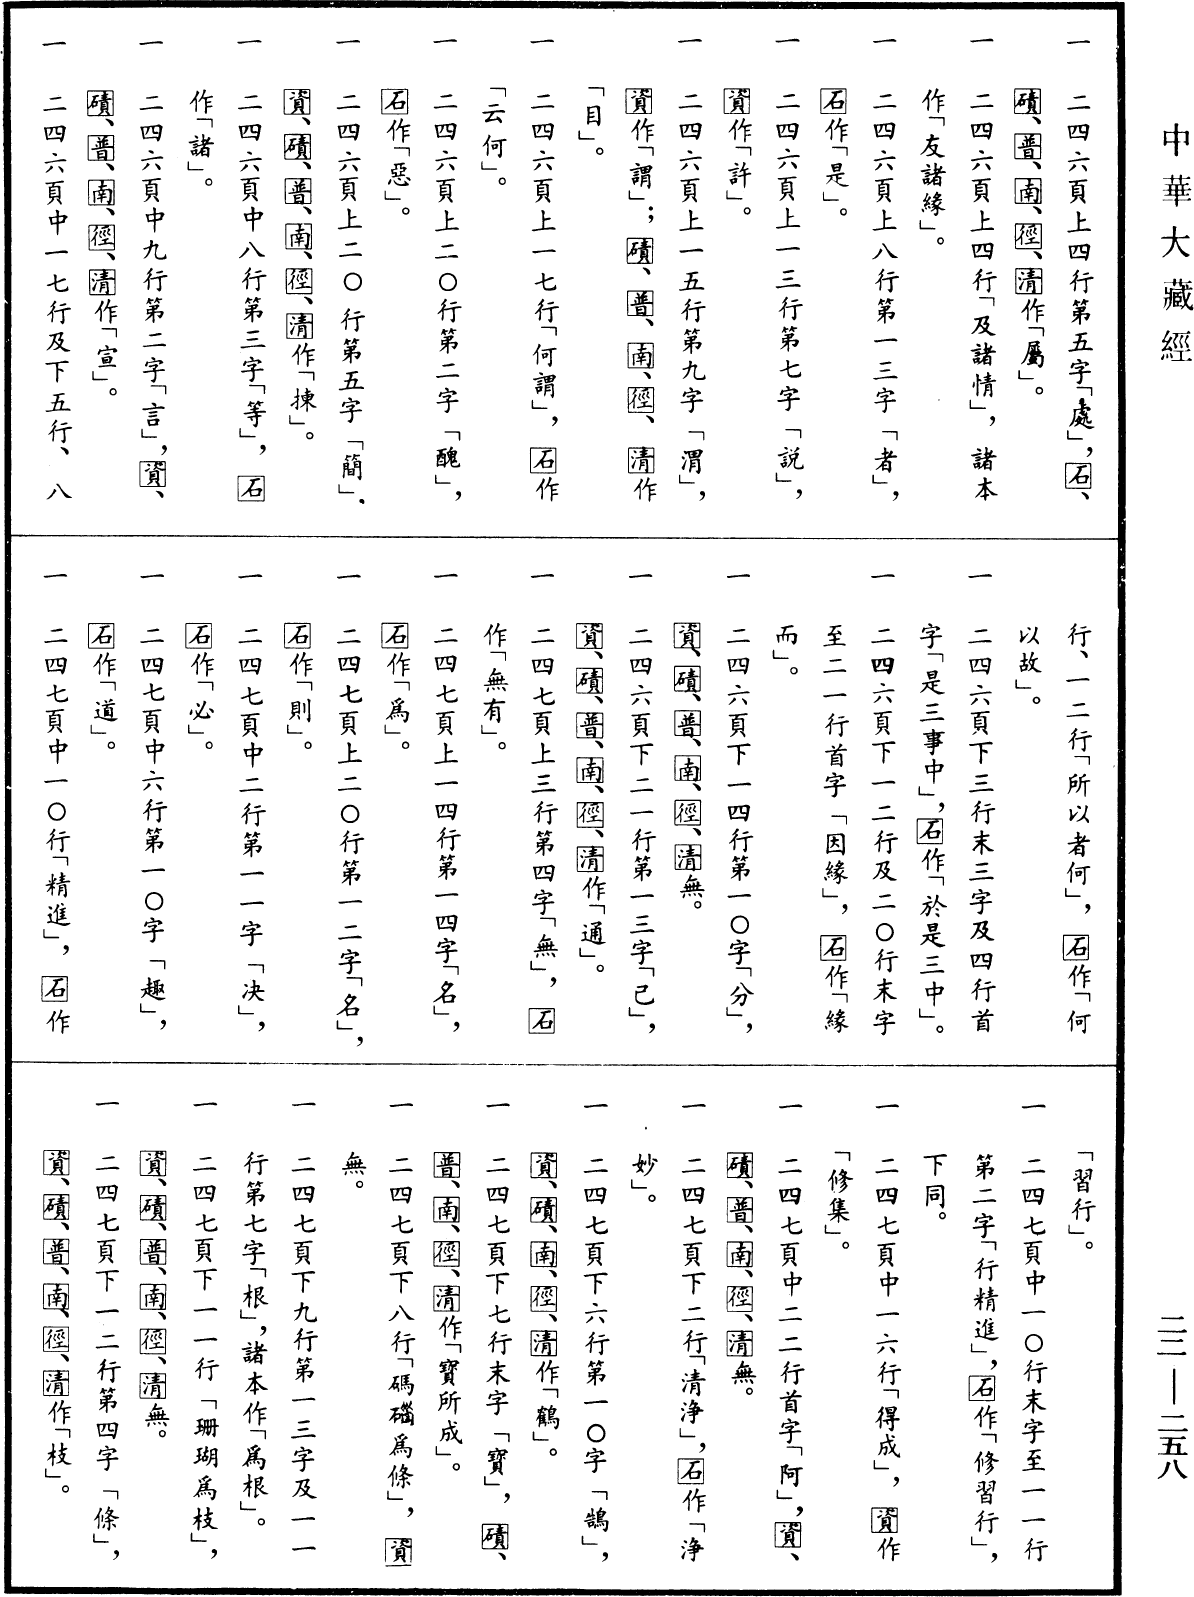 中華大藏經
一　二四六頁上四行第五字「處」，石、
磧、普、南、徑、清作「屬」。
一　二四六頁上四行「及諸情」，諸本
作「友諸緣」。
一　二四六頁上八行第一三字「者」，
石作「是」。
一　二四六頁上一三行第七字「説」，
資作「許」。
一　二四六頁上一五行第九字「渭」，
資作「謂」；磧、普、南、徑、清作
「目」。
一　二四六頁上一七行「何謂」，石作
「云何」。
一　二四六頁上二〇行第二字「醜」，
石作「惡」。
一　二四六頁上二〇行第五字「簡」，
資、磧、普、南、徑、清作「揀」。
一　二四六頁中八行第三字「等」，石
作「諸」。
一　二四六頁中九行第二字「言」，資、
磧、普、南、徑、清作「宣」。
一　二四六頁中一七行及下五行、八
行、一二行「所以者何」，石作「何
以故」。
一　二四六頁下三行末三字及四行首
字「是三事中」，石作「於是三中」。
一　二四六頁下一二行及二〇行末字
至二一行首字「因緣」，石作「緣
而」。
一　二四六頁下一四行第一〇字「分」，
資、磧、普、南、徑、清無。
一　二四六頁下二一行第一三字「已」，
資、磧、普、南、徑、清作「通」。
一　二四七頁上三行第四字「無」，石
作「無有」。
一　二四七頁上一四行第一四字「名」，
石作「爲」。
一　二四七頁上二〇行第一二字「名」，
石作「則」。
一　二四七頁中二行第一一字「决」，
石作「必」。
一　二四七頁中六行第一〇字「趣」，
石作「道」。
一　二四七頁中一〇行「精進」，石作
「習行」。
一　二四七頁中一〇行末字至一一行
第二字「行精進」，石作「修習行」，
下同。
一　二四七頁中一六行「得成」，資作
「修集」。
一　二四七頁中二二行首字「阿」，資、
磧、普、南、徑、清無。
一　二四七頁下二行「清浄」，石作「浄
妙」。
一　二四七頁下六行第一〇字「鵠」，
資、磧、南、徑、清作「鶴」。
一　二四七頁下七行末字「寶」，磧、
普、南、徑、清作「寶所成」。
一　二四七頁下八行「碼碯爲條」，資
無。
一　二四七頁下九行第一三字及一一
行第七字「根」，諸本作「爲根」。
一　二四七頁下一一行「珊瑚爲枝」，
資、磧、普、南、徑、清無。
一　二四七頁下一二行第四字「條」，
資、磧、普、南、徑、清作「枝」。
二二—二五八